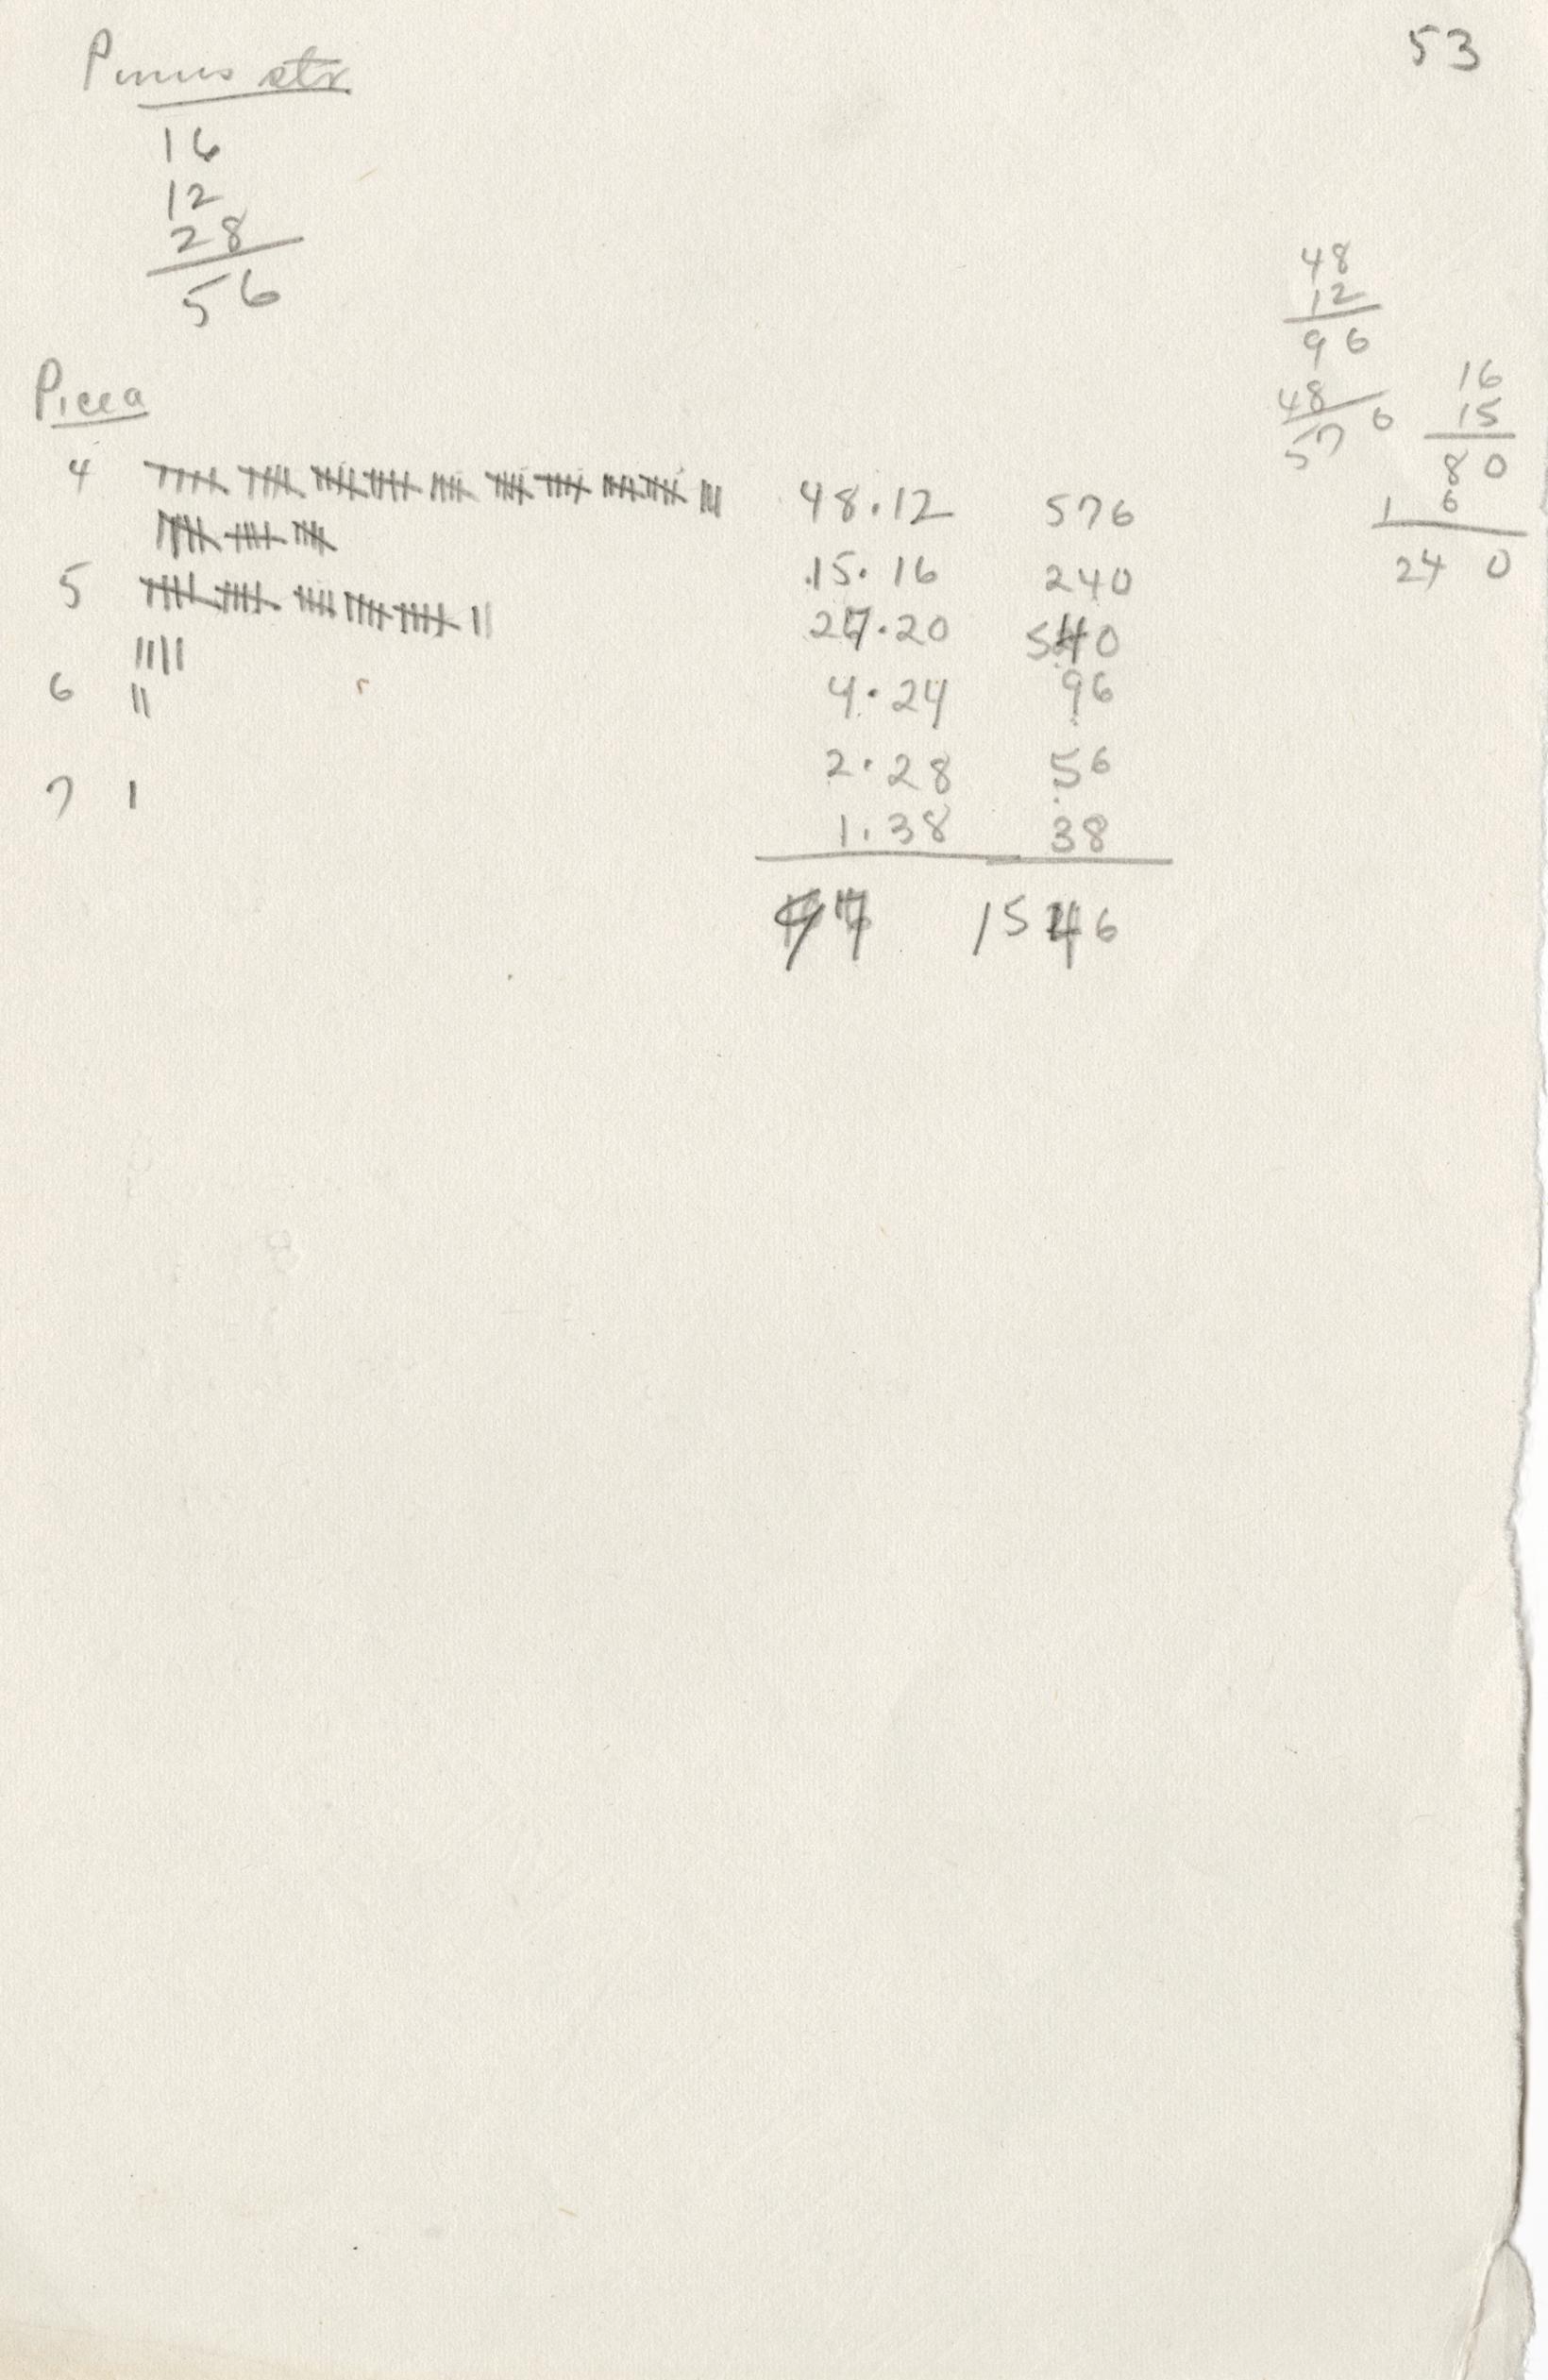 53
Pinus str
16
12
28
56
48
12
96
48
576
16
15
80
16
240
Picea
4 48.12 576
15.16 240
5 27.20 540
4.24 96
6
2.28 56
7 1.38 38
97 1546